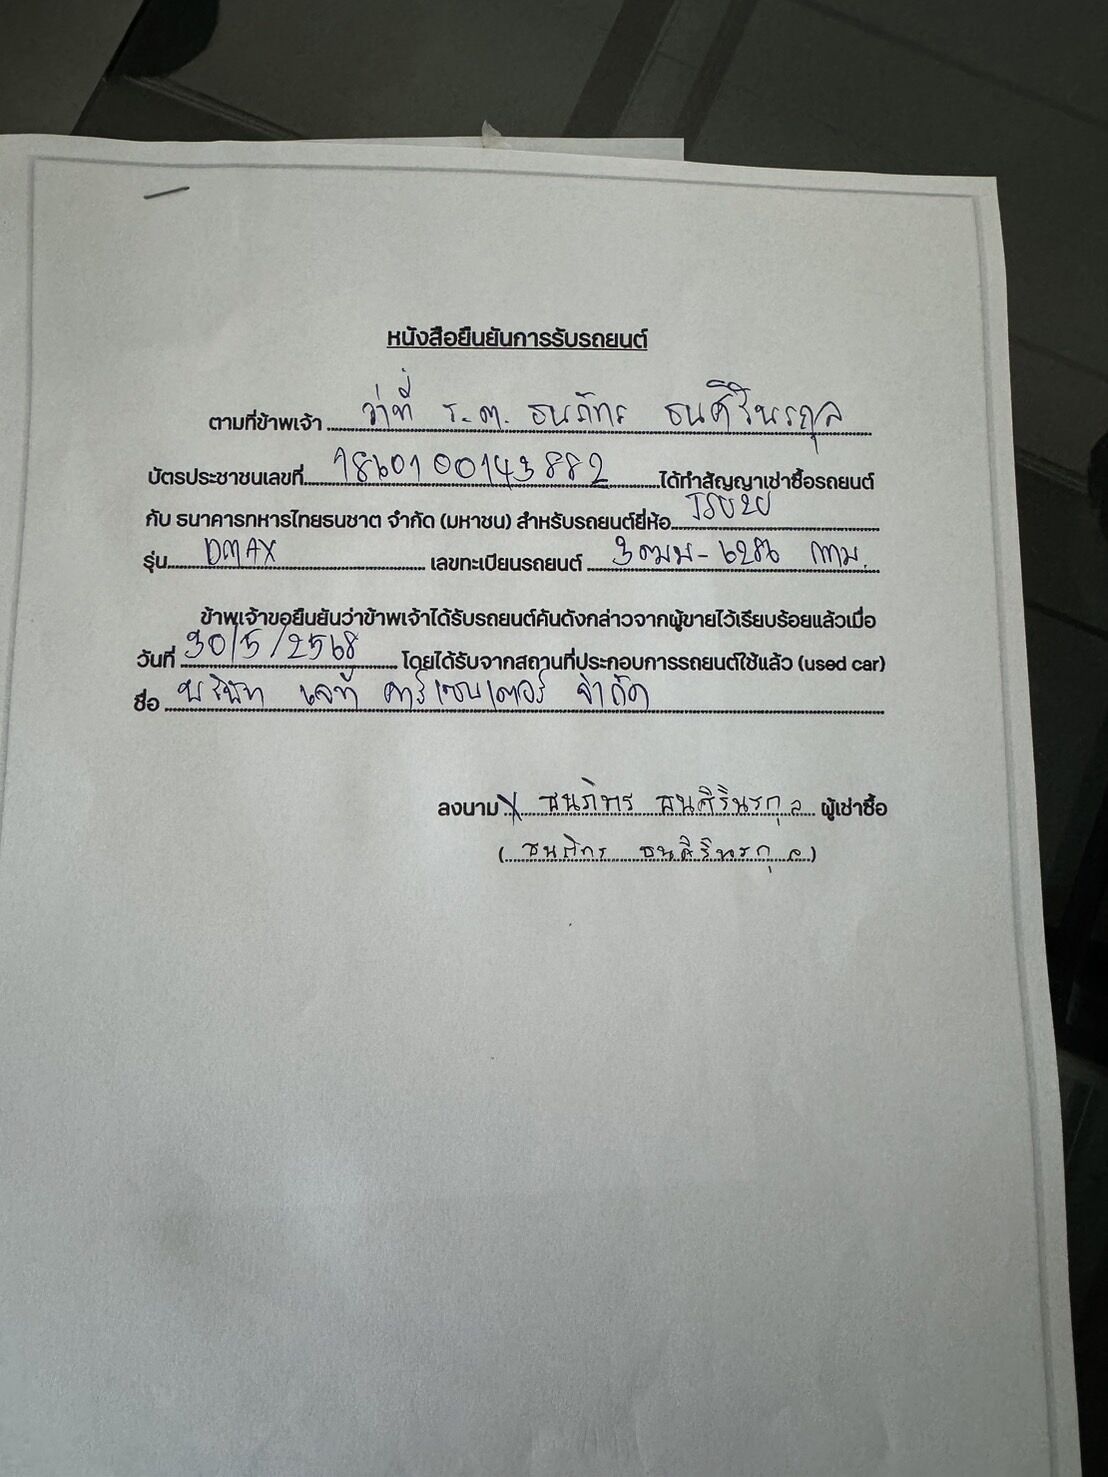 หนังสือยืนยันการรับรถยนต์
ตามที่ข้าพเจ้า ว่าที่ ร.ต. ธนภัทร ธนศิรินรกุล
บัตรประชาชนเลขที่ 1860100143882 ได้ทำสัญญาเช่าซื้อรถยนต์
กับ ธนาคารทหารไทยธนชาต จำกัด (มหาชน) สำหรับรถยนต์ยี่ห้อ ISUZU
รุ่น DMAX เลขทะเบียนรถยนต์ 3ฒม-6286 กทม.
ข้าพเจ้าขอยืนยันว่าข้าพเจ้าได้รับรถยนต์คันดังกล่าวจากผู้ขายไว้เรียบร้อยแล้วเมื่อ
วันที่ 30/5/2568 โดยได้รับจากสถานที่ประกอบการรถยนต์ใช้แล้ว (used car)
ชื่อ บริษัท เจที คาร์เซนเตอร์ จำกัด
ลงนาม X ธนภัทร ธนศิรินรกุล ผู้เช่าซื้อ
(ธนภัทร ธนศิรินรกุล)